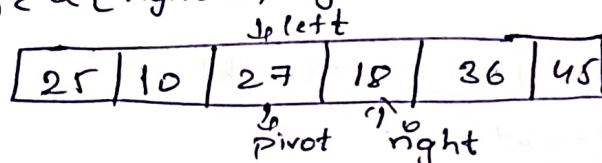 left
25 10 27 18 36 45
pivot right